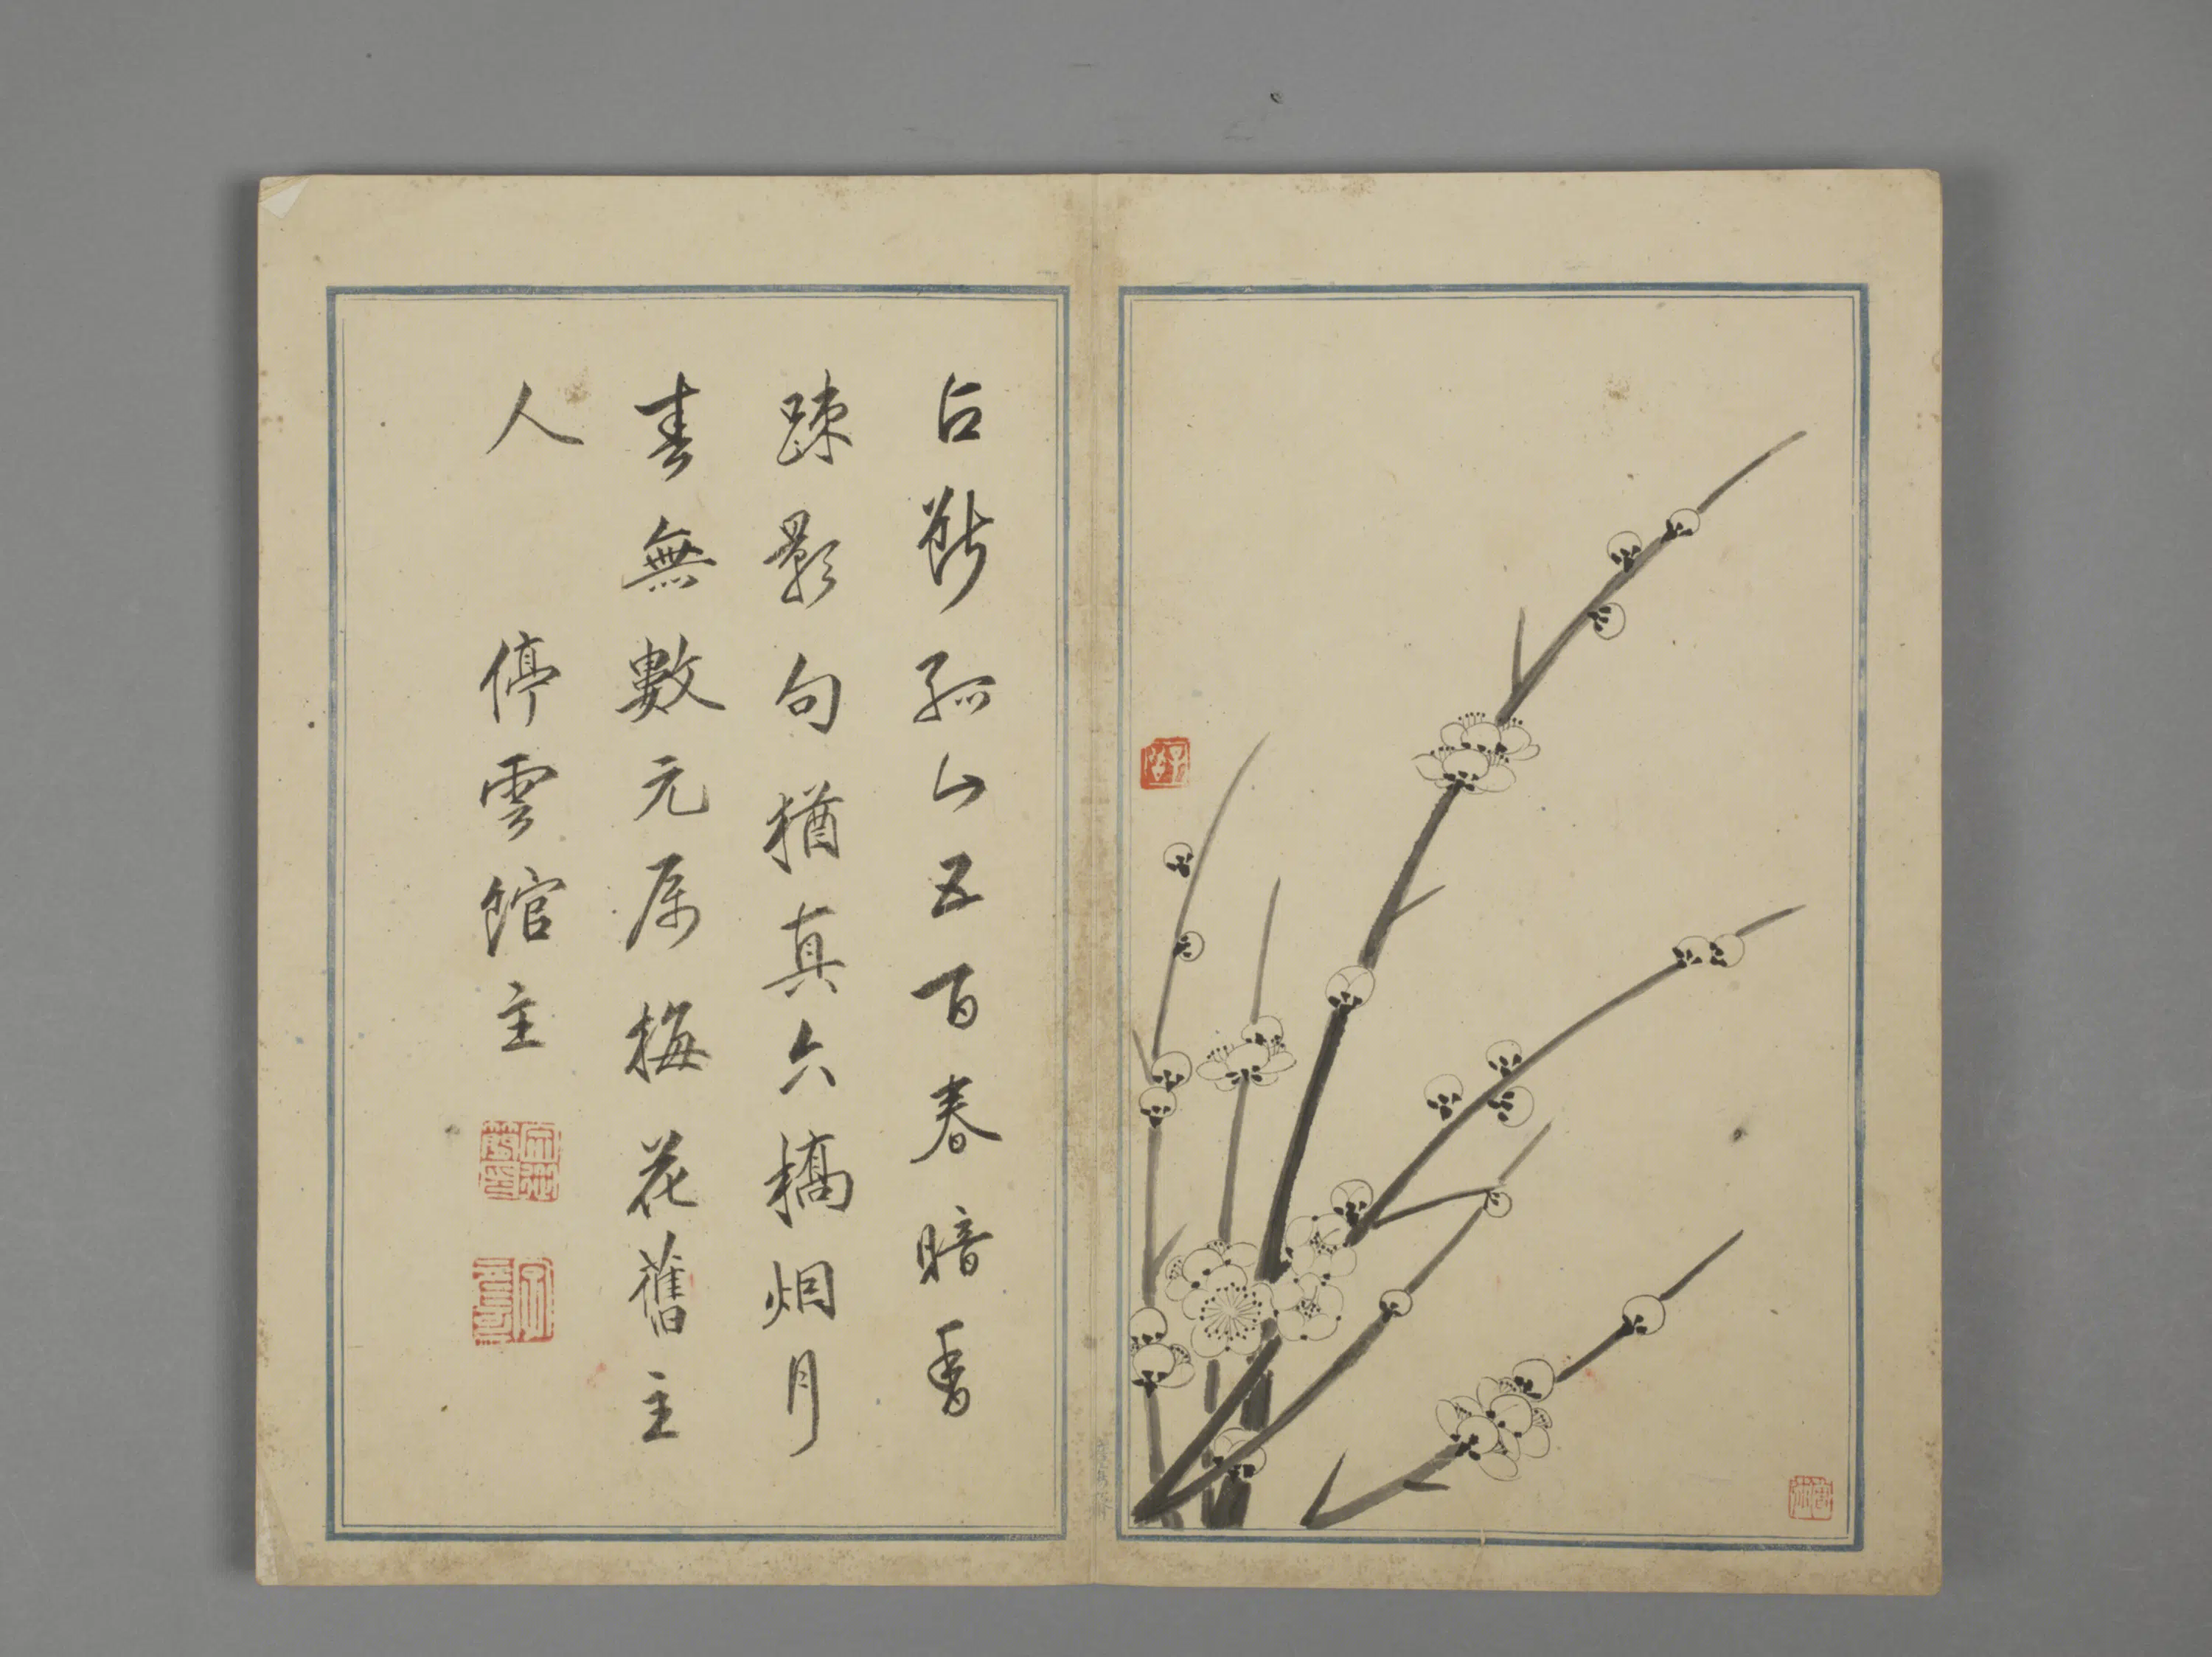 占斷孤山五百春暗香
踈影句猶真六橋烟月
春無數元屬梅花舊主
人　停雲館主